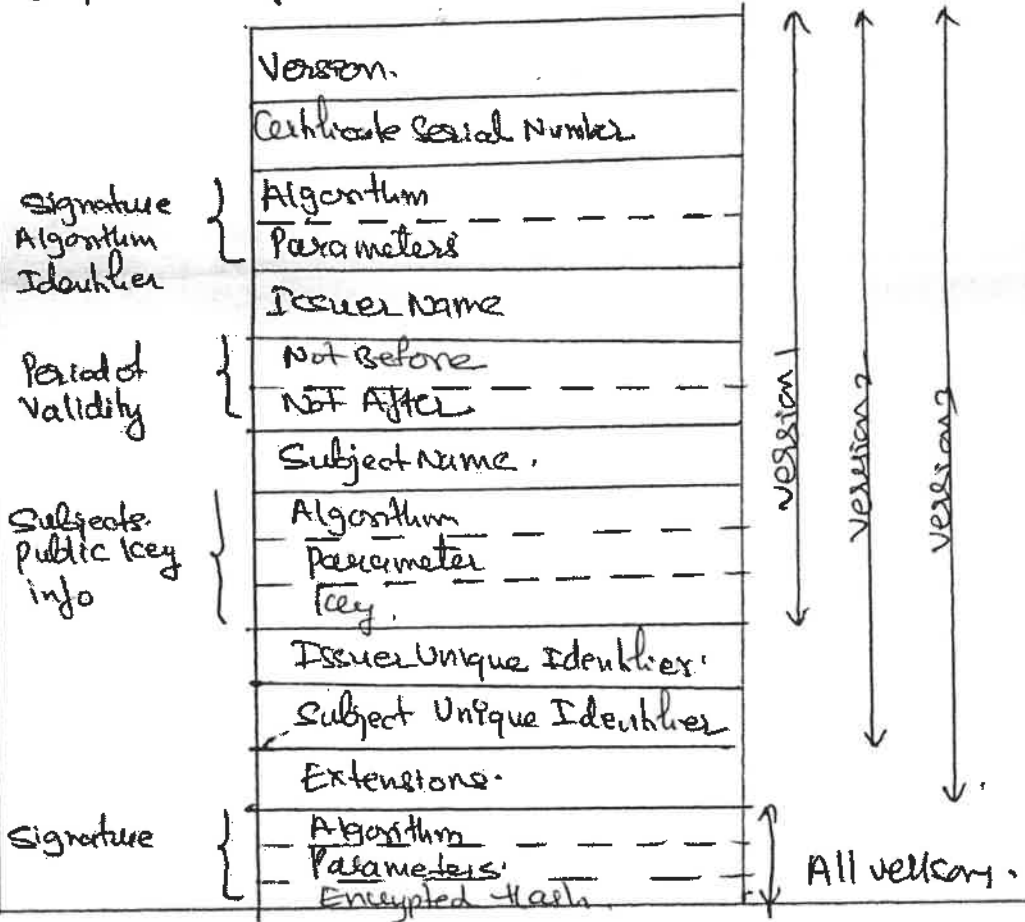 Version.
Certificate Serial Number
Signature
Algorithm
Identifier
Algorithm
Parameters
Issuer Name
Period of
Validity
Not Before
Not After
Subject Name.
Subjects
public key
info
Algorithm
Parameter
key.
Issuer Unique Identifier.
Subject Unique Identifier
Extensions.
Signature
Algorithm
Parameters.
Encrypted Hash
version 1
version 2
version
All versions.